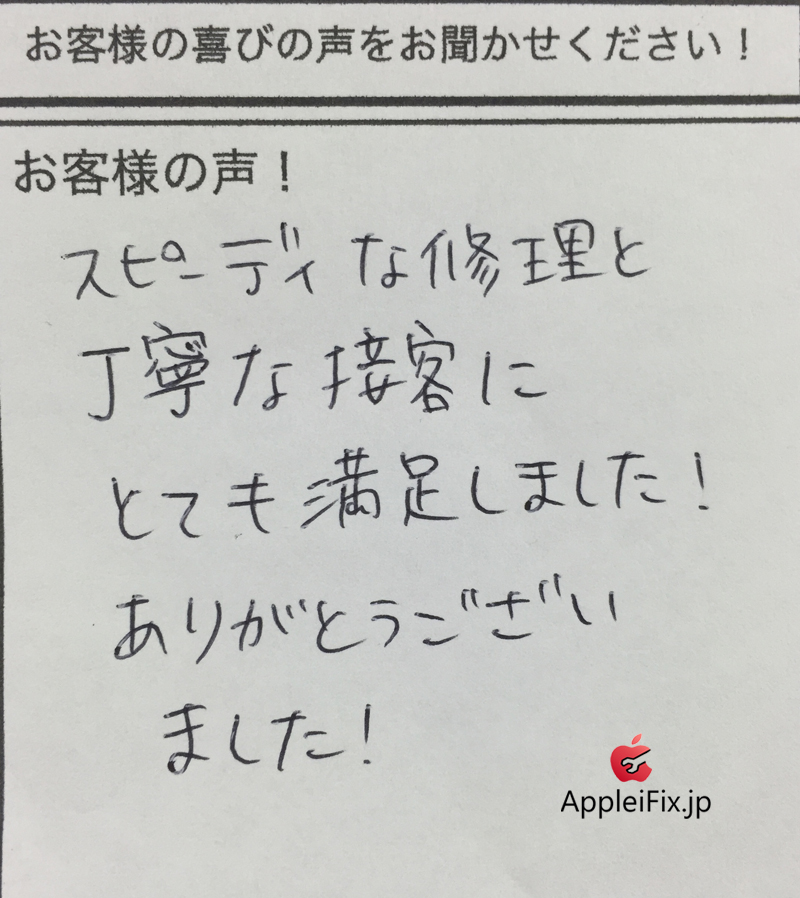 お客様の喜びの声をお聞かせください！
お客様の声！
スピーディな修理と
丁寧な接客に
とても満足しました！
ありがとうござい
ました！
AppleiFix.jp